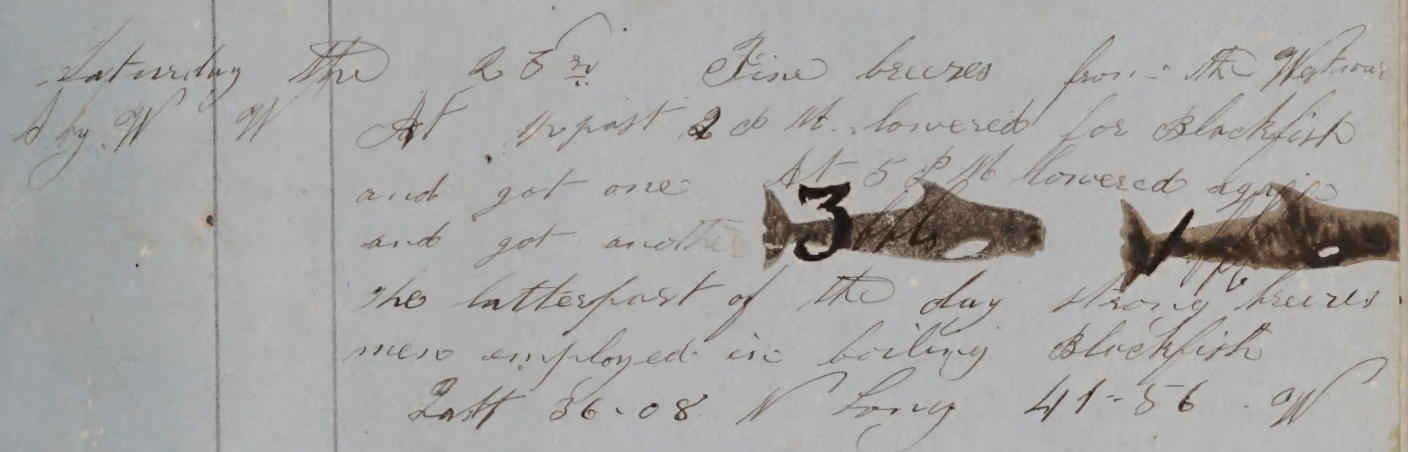 Saturday the 23rd Fine breezes from the Westward
S by W W At ½ past 2 P M. lowered for Blackfish
and got one At 5 P M lowered again
and got another 3 bbls
the latterpart of the day strong breezes
men employed in boiling Blackfish
Latt 36-08 N Long 41-56 W